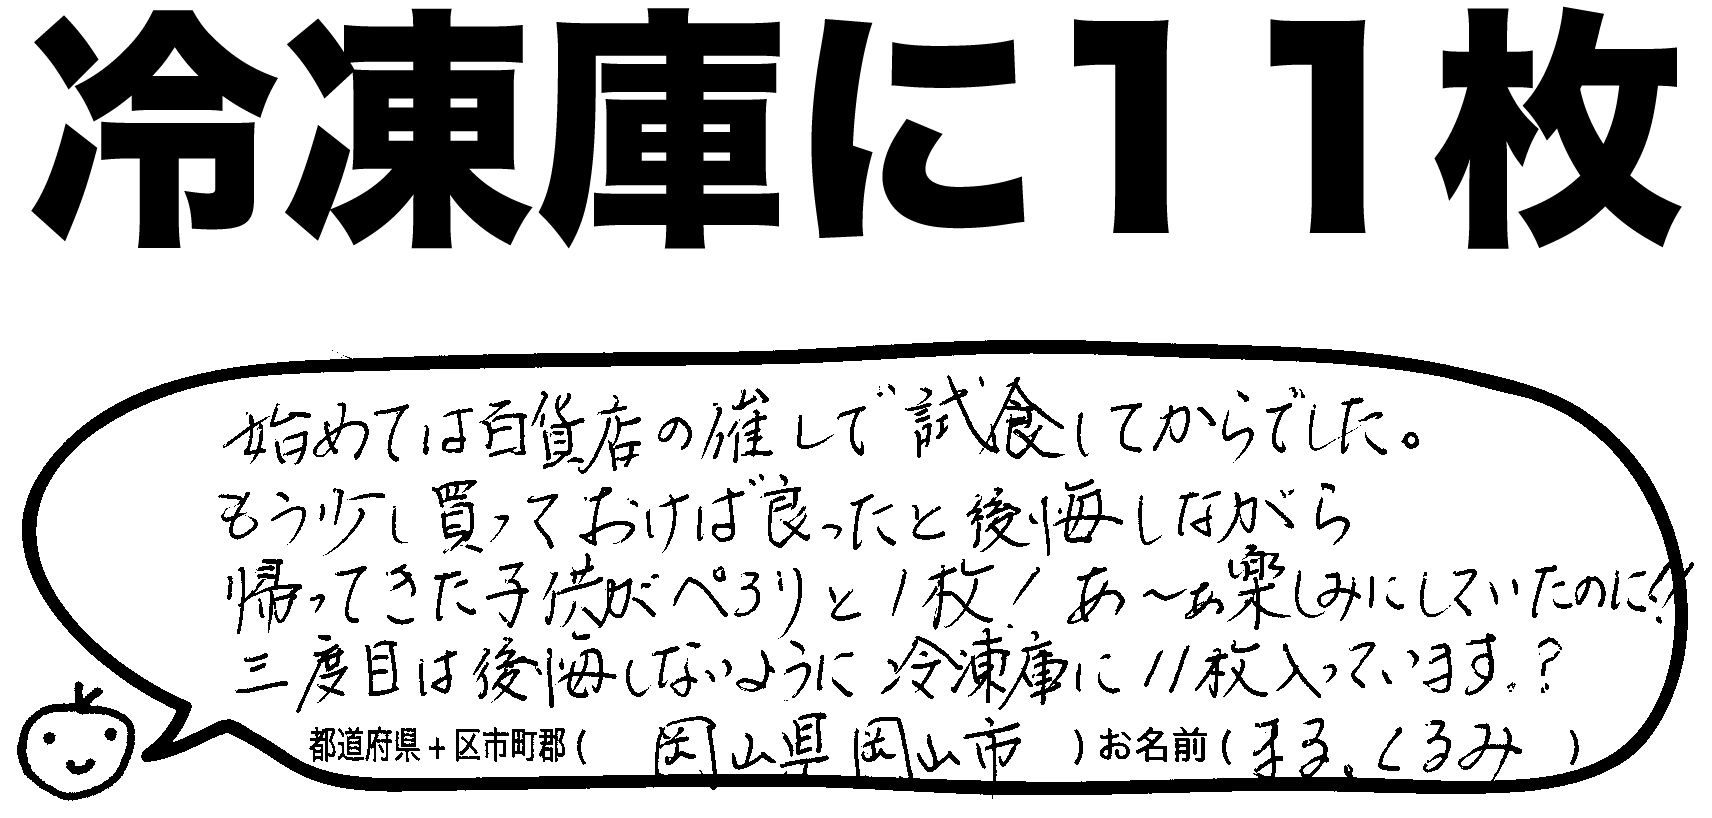 冷凍庫に11枚
始めては百貨店の催しで試食してからでした。
もう少し買っておけば良ったと後悔しながら
帰ってきた子供がぺろりと1枚! あ～ぁ楽しみにしていたのに!!
三度目は後悔しないように冷凍庫に11枚入っています。?
都道府県+区市町郡( 岡山県岡山市 )お名前( まる。くるみ )